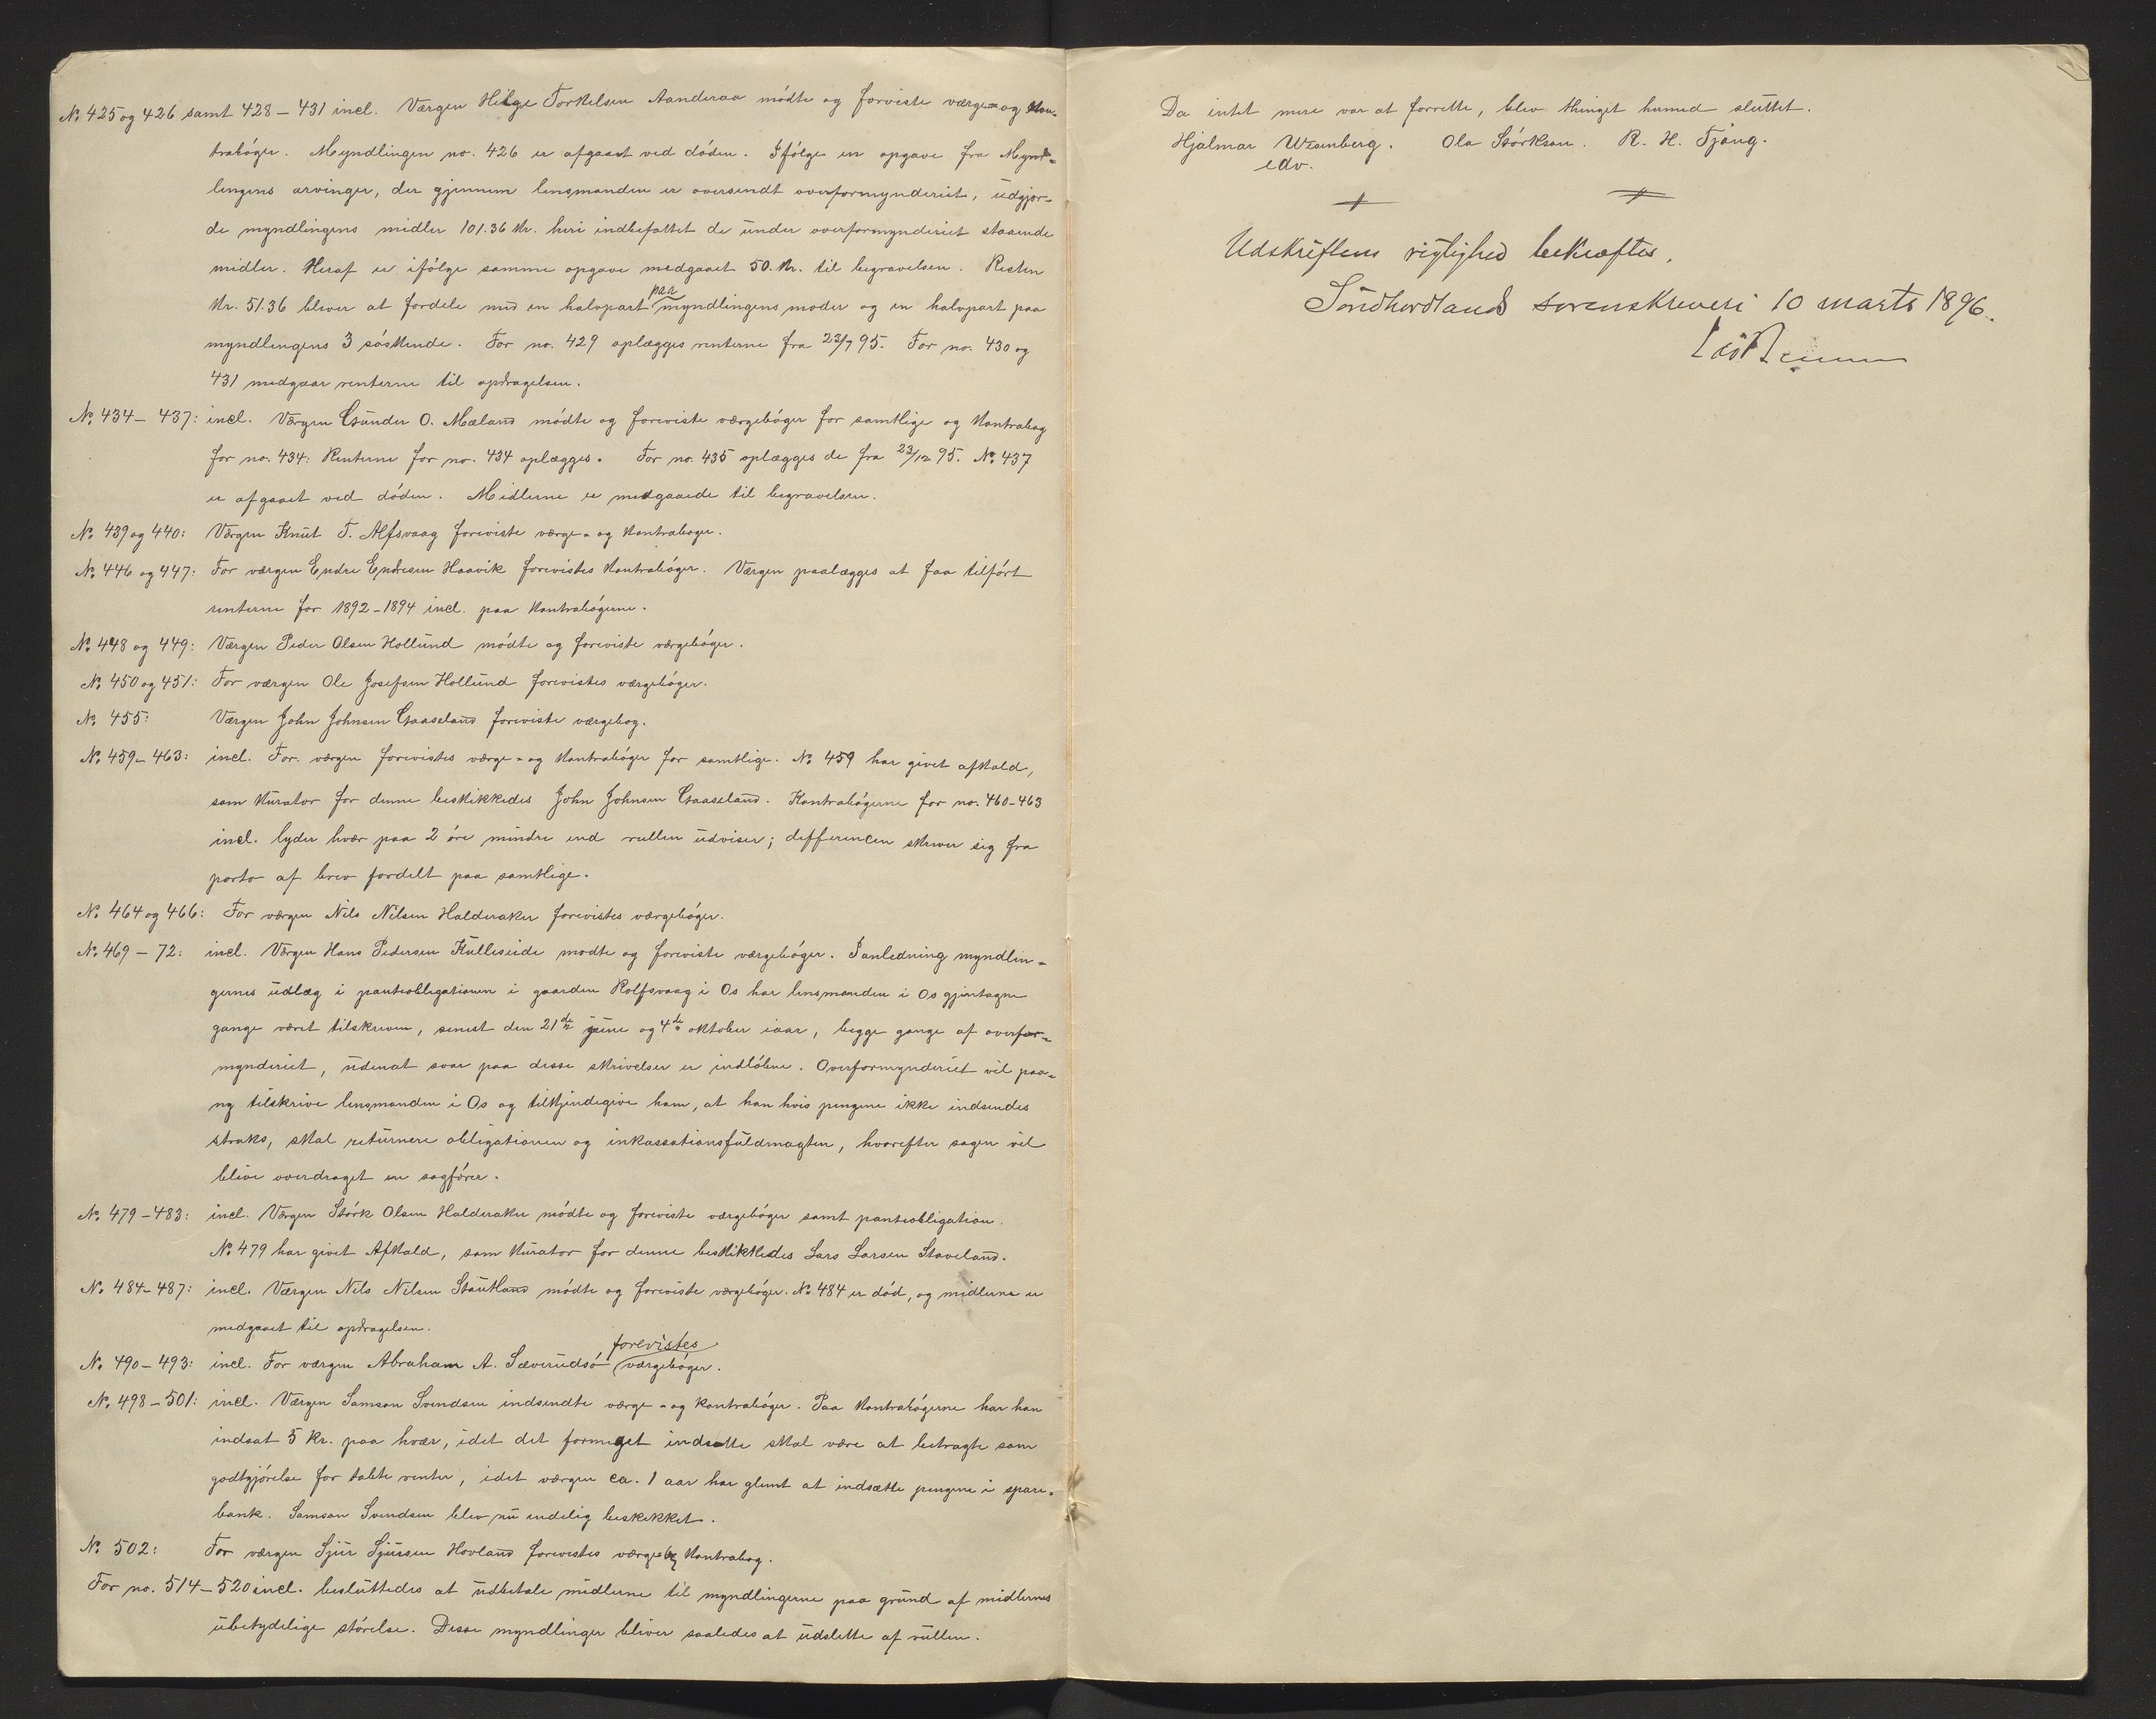 No. 425 og 426 samt 428 – 431 incl. Værgen Helge Torkelsen Aanderaa mödte og foreviste værge= og kon-
trabøger. Myndlingen no. 426 er afgaaet ved döden. Ifölge en opgave fra Mynd=
lingens arvinger, der gjennem lensmanden er oversendt overformynderiet, udgjor-
de myndlingens midler 101.36 Kr. heri indbefattet de under overformynderiet staaende
midler. Heraf er ifölge samme opgave medgaaet 50. Kr. til begravelsen. Resten
Kr. 51.36 bliver at fordele med en halvpart paa myndlingens moder og en halvpart paa
myndlingens 3 söskende. For no. 429 oplægges renterne fra 23/7 95. For no. 430 og
431 medgaar renterne til opdragelsen.
No. 434 – 437: incl. Værgen Gunder O. Mæland mödte og foreviste værgebóger for samtlige og Kontrabog
for no. 434: Renterne for no. 434 oplægges. For no. 435 oplægges de fra 23/12 95. No. 437
er afgaaet ved döden. Midlerne er medgaaede til begravelsen.
No. 439 og 440: Værgen Knut T. Alfsvaag foreviste værge- og Kontraboger.
No. 446 og 447: For værgen Endre Endresen Haavik forevistes Kontrabóger. Værgen paalægges at faa tilfört
renterne for 1892–1894 incl. paa Kontrabógerne.
No. 448 og 449: Værgen Peder Olsen Hollund mödte og foreviste værgebóger.
No. 450 og 451: For værgen Ole Josefsen Hollund forevistes værgebóger.
No. 455: Værgen John Johnsen Gaaseland foreviste værgebog.
No. 459–463: incl. For værgen forevistes værge- og Kontrabóger for samtlige. No. 459 har givet afkald,
som Kurator for denne beskikkedes John Johnsen Gaaseland. Kontrabógerne for no. 460–463
incl. lyder hver paa 2 öre mindre end rullen udviser; differencen skriver sig fra
porto af brev fordelt paa samtlige.
No. 464 og 466: For værgen Nils Nilsen Halderaker forevistes værgebóger.
No. 469 – 72: incl. Værgen Hans Pedersen Kulleseide modte og foreviste værgebóger. I anledning myndlin=
gernes udlæg i panteobligationen i gaarden Rolfsvaag i Os har lensmanden i Os gjentagne
gange været tilskreven, senest den 21de june og 4de oktober iaar, begge gange af overfor=
mynderiet, udenat svar paa disse skrivelser er indlóbne. Overformynderiet vil paa=
ny tilskrive lensmanden i Os og tilkjendegive ham, at han hvis pengene ikke indsendes
straks, skal returnere obligationen og inkassationsfuldmagten, hvorefter sagen vil
blive overdraget en sagfórer.
No. 479 – 483: incl. Værgen Störk Olsen Halderaker mödte og foreviste værgebóger samt panteobligation.
No. 479 har givet Afkald, som Kurator for denne beskikkedes Lars Larsen Staveland.
No. 484–487: incl. Værgen Nils Nilsen Stautland mödte og foreviste værgebóger. No. 484 er död, og midlerne er
medgaaet til opdragelsen.
No. 490 – 493: incl. For værgen Abraham A. Sæverudsö forevistes værgebóger.
No. 498 – 501: incl. Værgen Samson Svendsen indsendte værge - og kontrabóger. Paa Kontrabógerne har han
indsat 5 Kr. paa hver, idet det formeget indsatte skal være at betragte som
godtgjörelse for tabte renter, idet værgen ca. 1 aar har glemt at indsætte pengene i spare=
bank. Samson Svendsen blev nu endelig beskikket.
No. 502: For værgen Sjur Sjursen Hovland forevistes værge og Kontrabog.
For no. 514 – 520 incl. besluttedes at udbetale midlerne til myndlingerne paa grund af midlernes
ubetydelige störelse. Disse myndlinger bliver saaledes at udslette af rullen.
Da intet mere var at forrette, blev thinget hermed sluttet.
Hjalmar Wesenberg. Ola Störkson. R. H. Tjong.
edv.
Udskriftens rigtighed bekræftes,
Söndhordlands sorenskriveri 10 marts 1896.